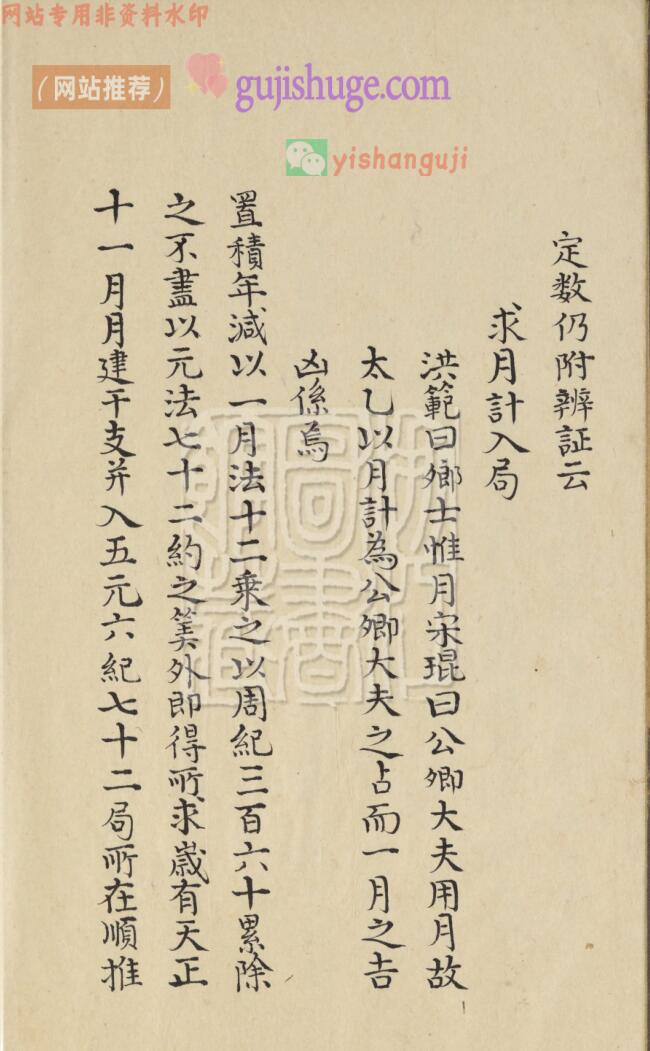 网站专用非资料水印
（网站推荐）
gujishuge.com
yishanguji
定数仍附辨証云
求月計入局
洪範曰鄉士惟月宋琨曰公卿大夫用月故
太乙以月計為公卿大夫之占而一月之吉
凶係焉
置積年减以一月法十二乗之以周紀三百六十累除
之不盡以元法七十二約之筭外即得所求歳有天正
十一月月建干支并入五元六紀七十二局所在順推